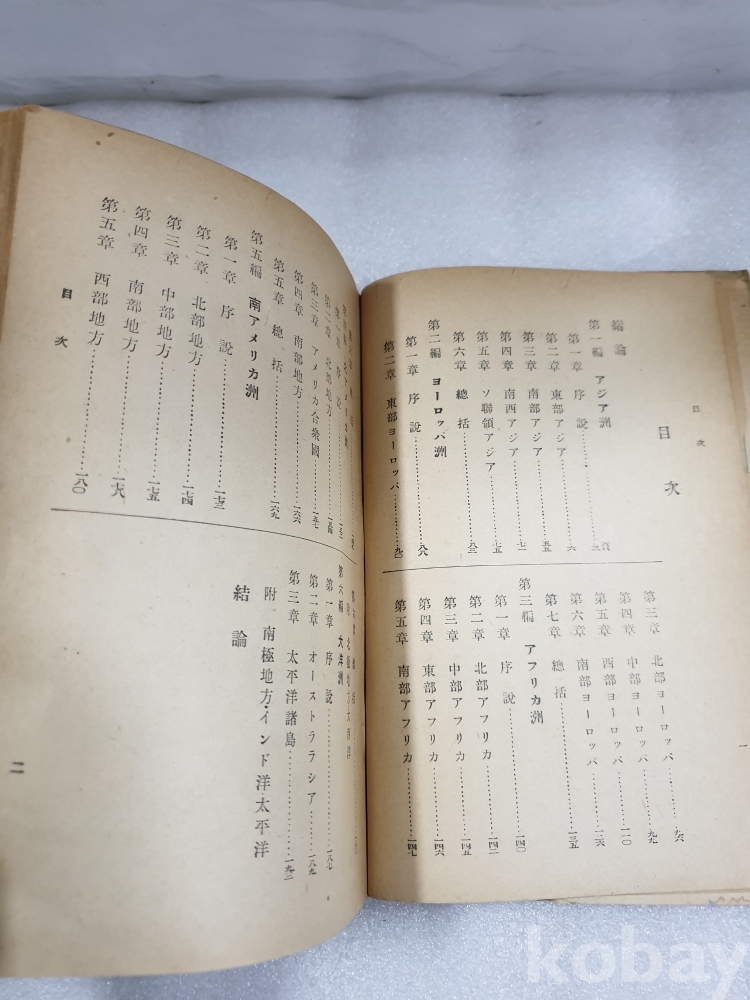 目次
目次
緒論
第一編 アジア洲
第一章 序說
第二章 東部アジア 六
第三章 南部アジア 五五
第四章 南西アジア 七一
第五章 ソ聯領アジア 七五
第六章 總括 八三
第二編 ヨーロッパ洲
第一章 序說 八六
第二章 東部ヨーロッパ 九〇
第三章 北部ヨーロッパ 九六
第四章 中部ヨーロッパ 九九
第五章 西部ヨーロッパ 一一〇
第六章 南部ヨーロッパ 一二六
第七章 總括 一三五
第三編 アフリカ洲
第一章 序說 一四〇
第二章 北部アフリカ 一四二
第三章 中部アフリカ 一四五
第四章 東部アフリカ 一四六
第五章 南部アフリカ 一四七
一
第二章 北部地方
第三章 アメリカ合衆國 一五七
第四章 南部地方 一六六
第五章 總括 一六九
第五編 南アメリカ洲
第一章 序說 一七三
第二章 北部地方 一七四
第三章 中部地方 一七五
第四章 南部地方 一七八
第五章 西部地方 一八〇
目次
第六編 太洋洲
第一章 序說 一八七
第二章 オーストララシア 一八九
第三章 太平洋諸島 一九二
附、南極地方・インド洋太平洋
結論
二
kobay